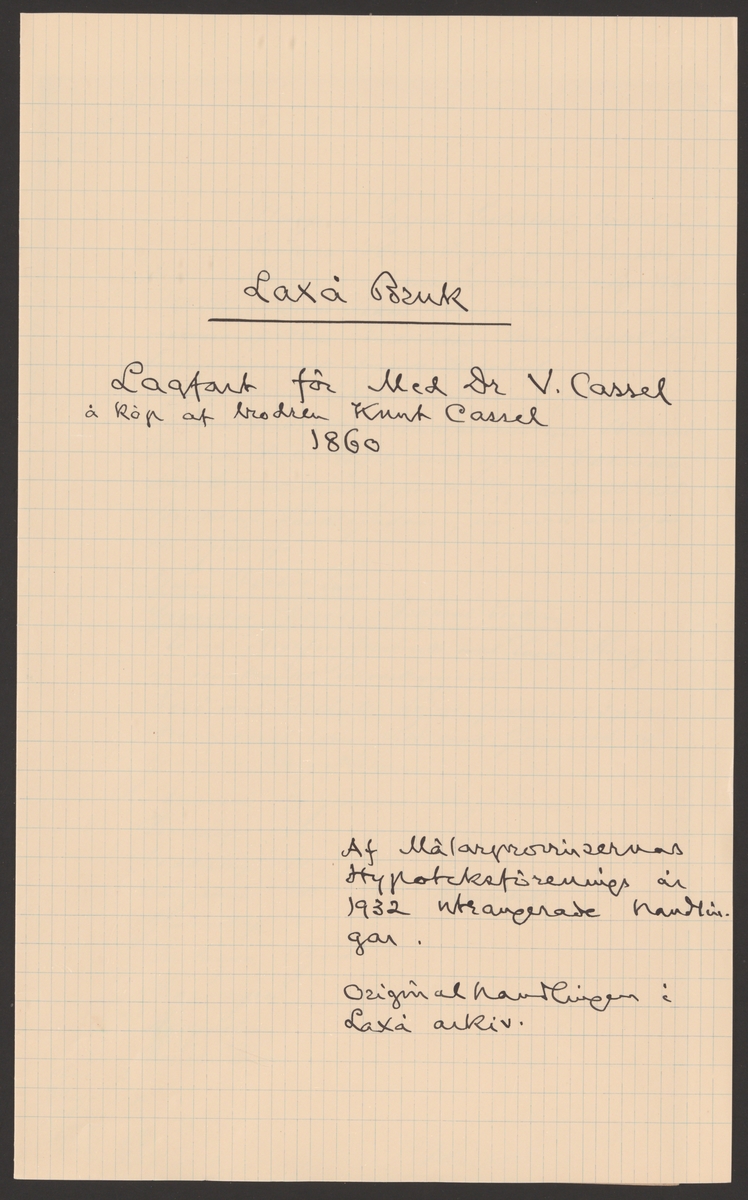 Laxå Bruk
Lagfart för Med Dr V. Cassel
å köp af brodren Knut Cassel
1860
Af Mälarprovinsernas
Hypoteksförenings år
1932 utrangerade handlin-
gar.
Originalhandlingen i
Laxå arkiv.